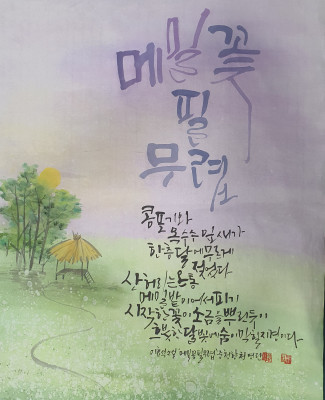 메밀꽃
필
무렵
콩포기와
옥수수 잎새가
한층 달에 푸르게
젖었다
산허리는 온통
메밀밭이어서 피기
시작한 꽃이 소금을 뿌린듯이
흐붓한 달빛에 숨이 막힐지경이다
이효석의 메밀꽃필무렵